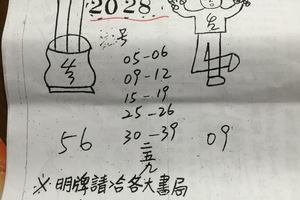 20 28
05-06
09-12
15-19
25-26
56 30-39 09
二五九
※明牌請洽各大書局